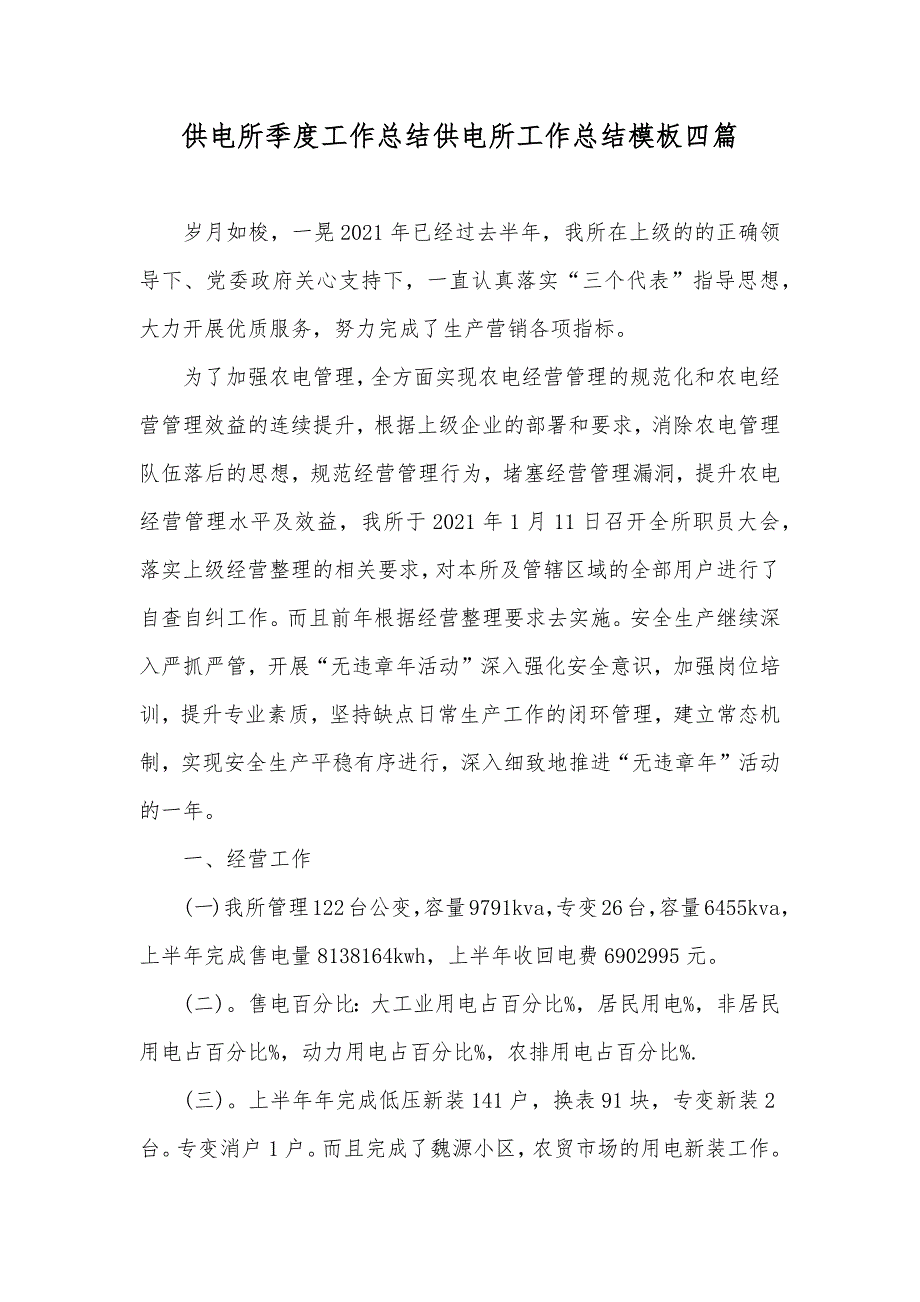 供电所季度工作总结供电所工作总结模板四篇
岁月如梭，一晃2021年已经过去半年，我所在上级的的正确领
导下、党委政府关心支持下，一直认真落实“三个代表”指导思想，
大力开展优质服务，努力完成了生产营销各项指标。
为了加强农电管理，全方面实现农电经营管理的规范化和农电经
营管理效益的连续提升，根据上级企业的部署和要求，消除农电管理
队伍落后的思想，规范经营管理行为，堵塞经营管理漏洞，提升农电
经营管理水平及效益，我所于2021年1月11日召开全所职员大会，
落实上级经营整理的相关要求，对本所及管辖区域的全部用户进行了
自查自纠工作。而且前年根据经营整理要求去实施。安全生产继续深
入严抓严管，开展“无违章年活动”深入强化安全意识，加强岗位培
训，提升专业素质，坚持缺点日常生产工作的闭环管理，建立常态机
制，实现安全生产平稳有序进行，深入细致地推进“无违章年”活动
的一年。
一、经营工作
(一)我所管理122台公变，容量9791kva，专变26台，容量6455kva，
上半年完成售电量8138164kwh，上半年收回电费6902995元。
(二)。售电百分比：大工业用电占百分比%，居民用电%，非居民
用电占百分比%，动力用电占百分比%，农排用电占百分比%.
(三)。上半年年完成低压新装141户，换表91块，专变新装2
台。专变消户1户。而且完成了魏源小区，农贸市场的用电新装工作。